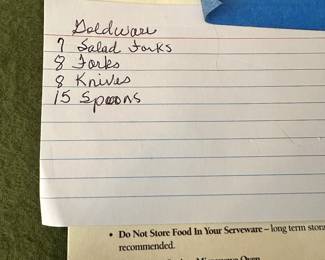 Goldware
7 Salad Forks
8 Forks
8 Knives
15 Spoons
• Do Not Store Food In Your Serveware – long term
recommended.
Microwave Oven